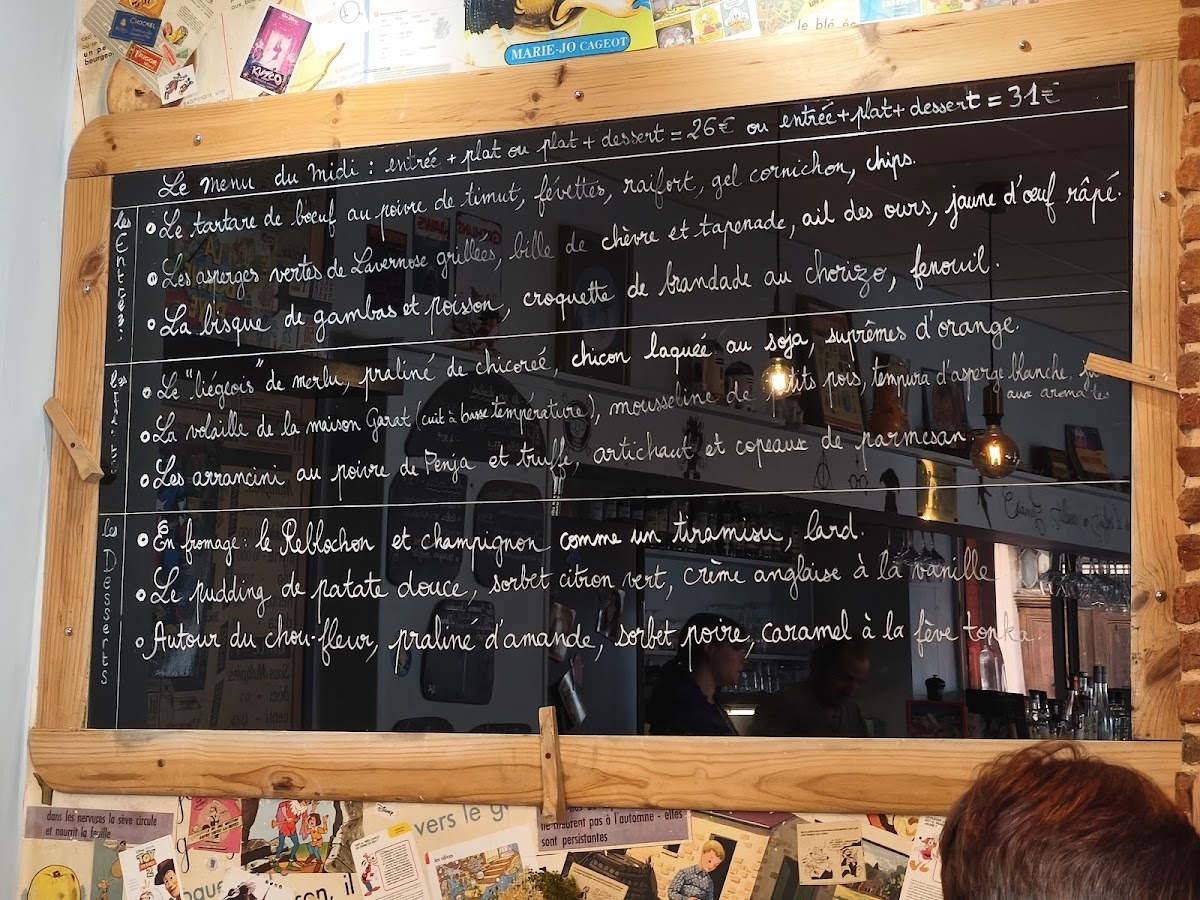 CHOCMEL
KUZCO
MARIE-JO CAGEOT
le blé é
Le Menu du Midi : entrée + plat ou plat + dessert = 26€ ou entrée + plat + dessert = 31€
les Entrées
• Le tartare de bœuf au poivre de timut, févettes, raifort, gel cornichon, chips.
• Les asperges vertes de Lavernose grillées, bille de chèvre et tapenade, ail des ours, jaune d'œuf râpé.
• La bisque de gambas et poisson, croquette de brandade au chorizo, fenouil.
les Plats
• Le "liégeois" de merlu, praliné de chicoreé, chicon laquée au soja, suprêmes d'orange.
• La volaille de la maison Garat (cuit à basse température), mousseline de petits pois, tempura d'asperge blanche, jus
aux aromates
• Les arrancini au poivre de Penja et truffe, artichaut et copeaux de parmesan
les Desserts
• En fromage : le Reblochon et champignon comme un tiramisu, lard.
• Le pudding de patate douce, sorbet citron vert, crème anglaise à la vanille
• Autour du chou-fleur, praliné d'amande, sorbet poire, caramel à la fève tonka.
dans les nervures la sève circule
et nourrit la feuille
vers le
ne meurent pas à l'automne - elles
sont persistantes